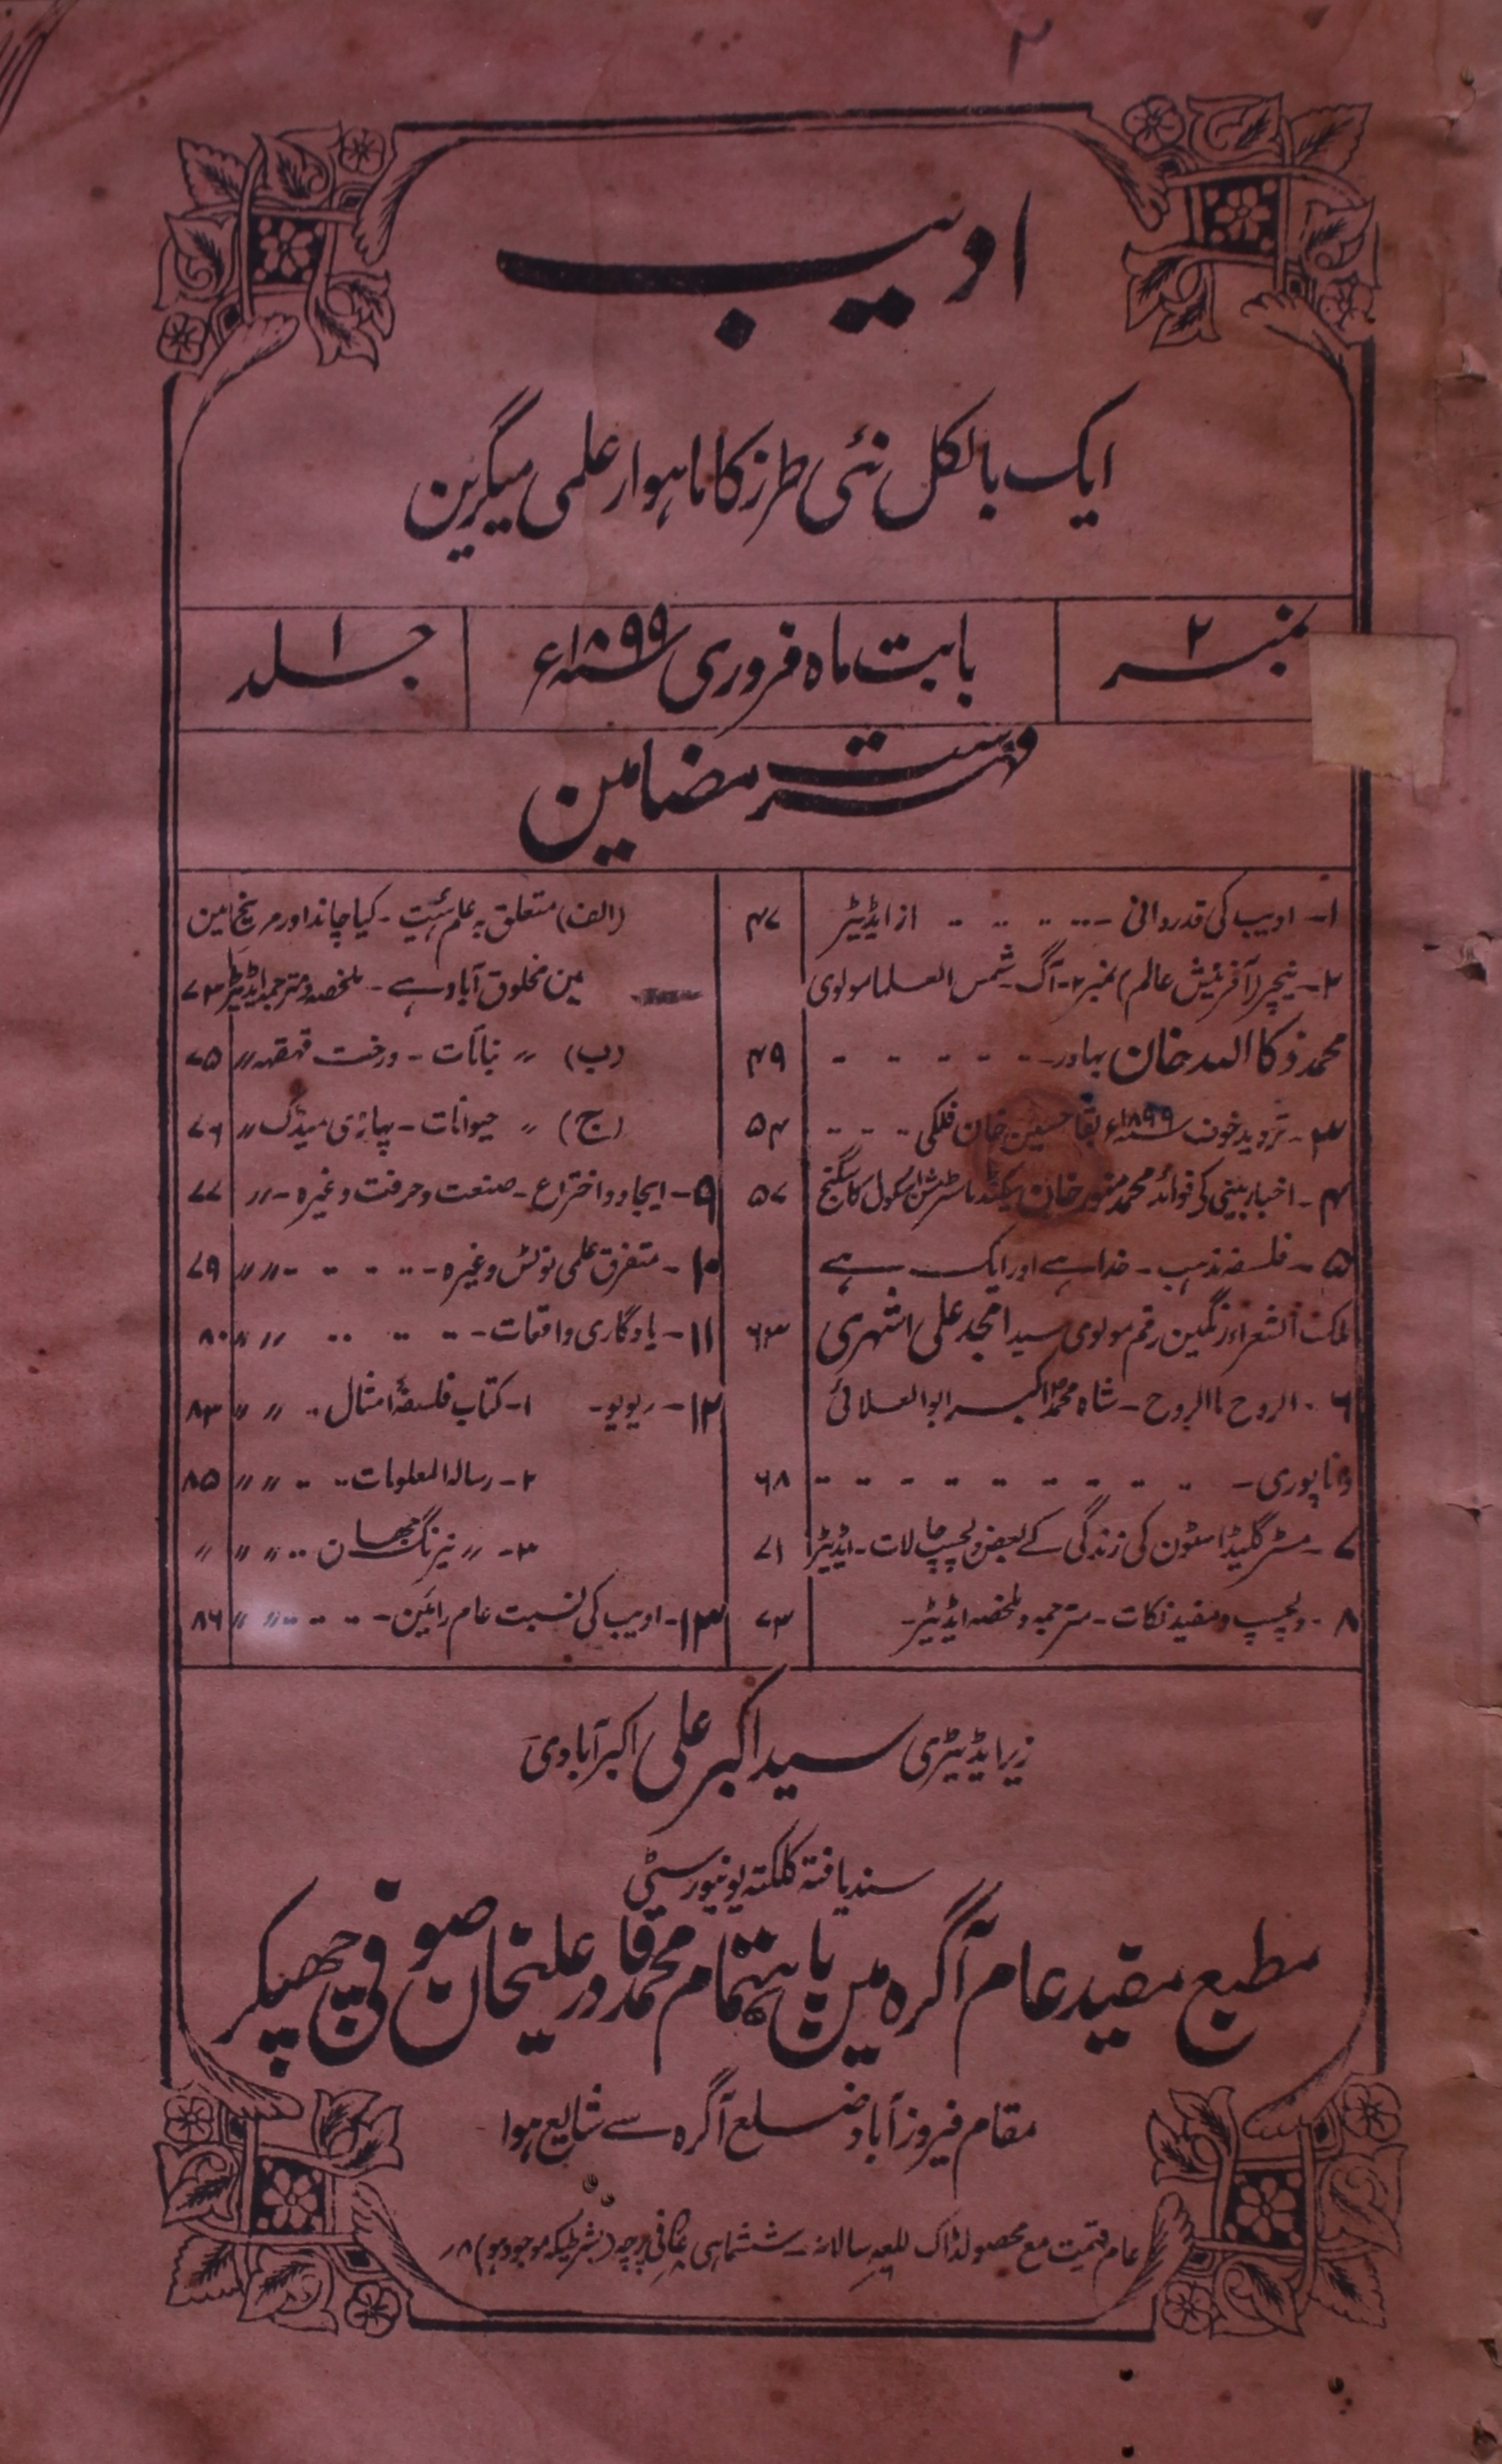 ۲
ادیب
ایک بالکل نئی طرز کا ماہوار علمی میگزین
نمبر ۲
بابت ماہ فروری سنہ ۱۸۹۹ء
جلد ۱
فہرست مضامین
۱۔ ادیب کی قدردانی ۔ از ایڈیٹر ۴۷
۲۔ نیچر (آفرینش عالم) نمبر ۲۔ آگ ۔ شمس العلما مولوی
محمد ذکاالله خان بہادر ۔ ۴۹
۳۔ تردید خوف سنہ ۱۸۹۹ء بقا حسین خان فلکی ۵۴
۴۔ اخبار بینی کی فوائد محمد منور خان سکنڈ ماسٹر مشن اسکول کاسگنج ۵۷
۵۔ فلسفہ مذہب ۔ خدا ہے اور ایک ہے
ملک الشعراء رنگین رقم مولوی سید امجد علی اشہری ۶۳
۶۔ الروح ما الروح ۔ شاہ محمد اکبر ابوالعلائی
داناپوری ۔ ۶۸
۷۔ مسٹر گلیڈاسٹون کی زندگی کے بعض دلچسپ حالات ۔ ایڈیٹر ۷۱
۸۔ دلچسپ و مفید نکات ۔ مترجمہ و ملخصہ ایڈیٹر ۔ ۷۳
(الف) متعلق بہ علم ہئیت ۔ کیا چاند اور مریخ مین
مین مخلوق آباد ہے ۔ ملخصہ و مترجمہ ایڈیٹر ۷۳
(ب) 〃 نباتات ۔ درخت قہقہہ 〃 ۷۵
(ج) 〃 حیوانات ۔ پہاڑی مینڈک 〃 ۷۶
۹۔ ایجاد و اختراع ۔ صنعت و حرفت وغیرہ ۔ 〃 ۷۷
۱۰۔ متفرق علمی نوٹس وغیرہ ۔ 〃 〃 ۷۹
۱۱۔ یادگاری واقعات ۔ 〃 〃 ۸۰
۱۲۔ ریویو۔ ۱۔ کتاب فلسفۂ امثال 〃 〃 ۸۳
۲۔ رسالہ المعلومات 〃 〃 ۸۵
۳۔ 〃 نیرنگ جہان 〃 〃 〃
۱۳۔ ادیب کی نسبت عام رائین ۔ 〃 〃 ۸۶
زیر ایڈیٹری سید اکبر علی اکبرآبادی
سند یافتہ کلکتہ یونیورسٹی
مطبع مفید عام آگرہ میں باہتمام محمد قادر علیخان صوفی چھپکر
مقام فیروزآباد ضلع آگرہ سے شایع ہوا
عام قیمت مع محصولڈاک سالانہ ۔ ششماہی فی پرچہ (بشرطیکہ موجود ہو) ۸؍